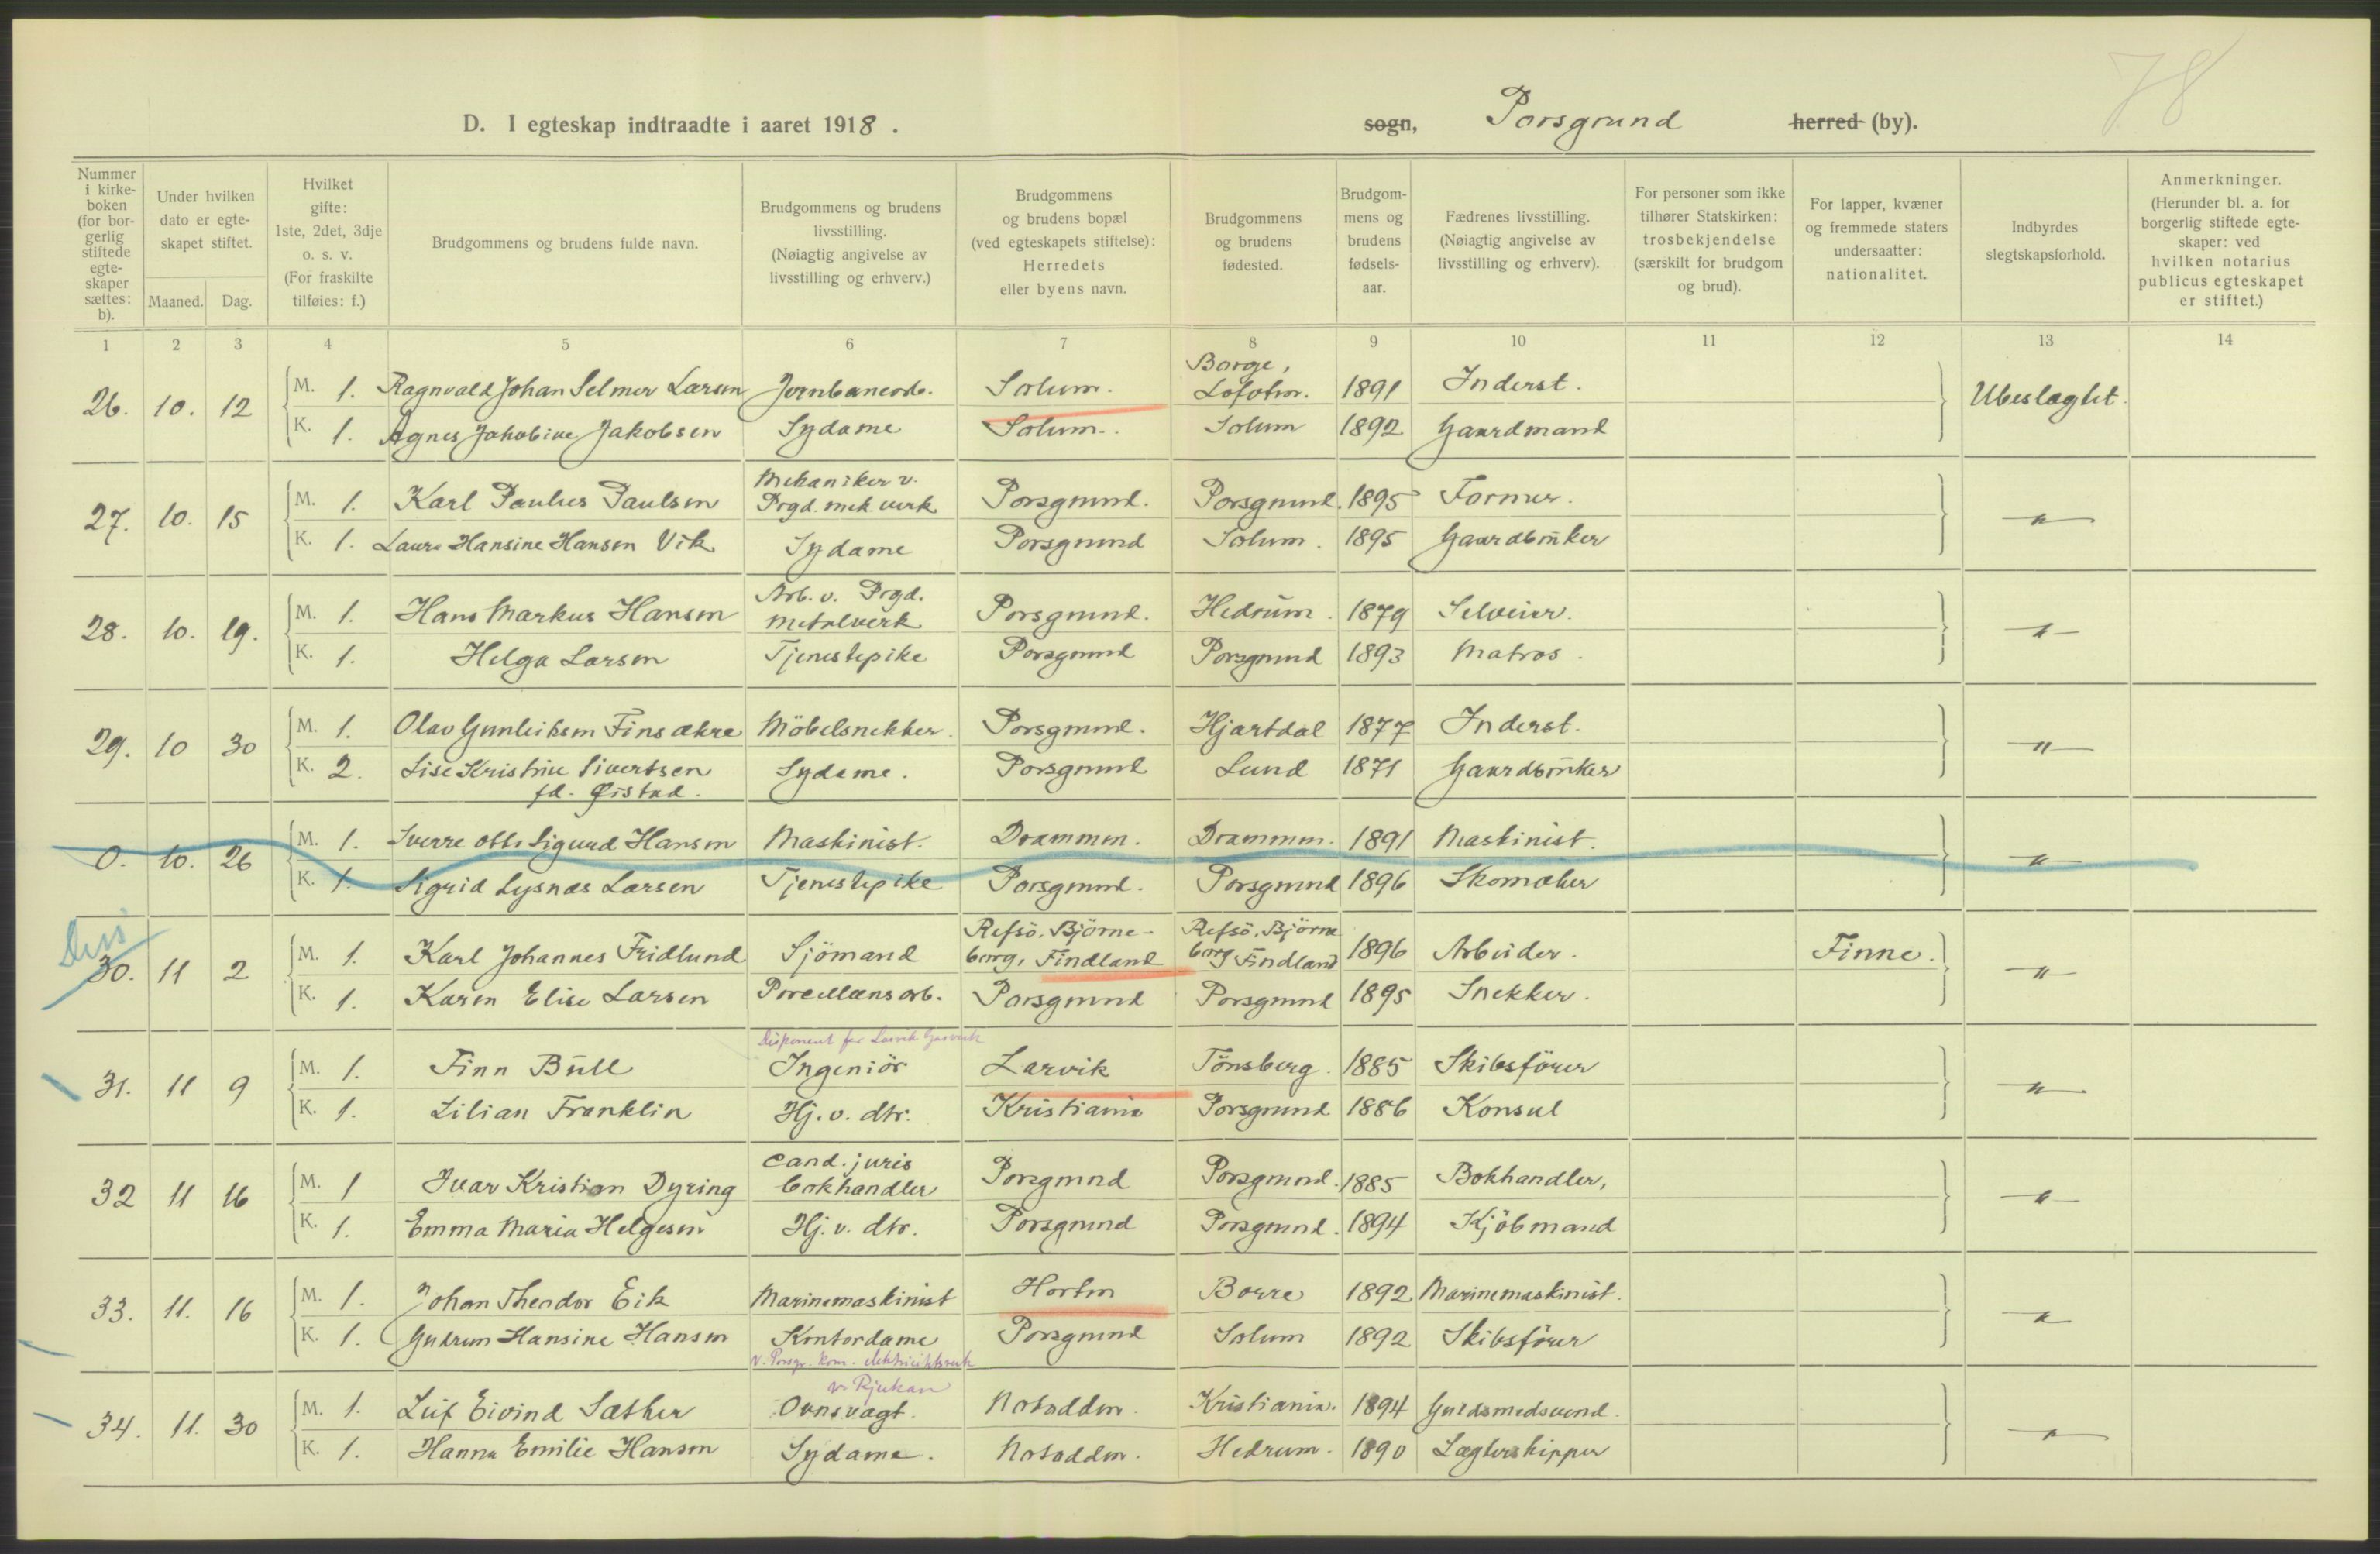 78
D. I egteskap indtraadte i aaret 1918. sogn, Porsgrund herred (by).
Nummer i kirke-boken (for bor-gerlig stiftede egte-skaper sættes: b).
Under hvilken dato er egte-skapet stiftet.
Maaned. Dag.
Hvilket gifte: 1ste, 2det, 3dje o. s. v. (For fraskilte tilføies: f.)
Brudgommens og brudens fulde navn.
Brudgommens og brudens livsstilling. (Nøiagtig angivelse av livsstilling og erhverv.)
Brudgommens og brudens bopæl (ved egteskapets stiftelse): Herredets eller byens navn.
Brudgommens og brudens fødested.
Brudgom-mens og brudens fødsels-aar.
Fædrenes livsstilling. (Nøiagtig angivelse av livsstilling og erhverv).
For personer som ikke tilhører Statskirken: trosbekjendelse (særskilt for brudgom og brud).
For lapper, kvæner og fremmede staters undersaatter: nationalitet.
Indbyrdes slegtskapsforhold.
Anmerkninger. (Herunder bl. a. for borgerlig stiftede egte-skaper: ved hvilken notarius publicus egteskapet er stiftet.)
1 2 3 4 5 6 7 8 9 10 11 12 13 14
26. 10. 12 M. 1. Ragnvald Johan Selmer Larsen Jernbanearb. Solum. Borge, Lofoten. 1891 Inderst. Ubeslægtet.
K. 1. Agnes Jakobine Jakobsen Sydame Solum. Solum 1892 Gaardmand
27. 10. 15 M. 1. Karl Paulus Paulsen Mekaniker v. Prgd. mek. verk Porsgrund. Porsgrund. 1895 Former. "
K. 1. Laura Hansine Hansen Vik Sydame Porsgrund Solum. 1895 Gaardbruker
28. 10. 19. M. 1. Hans Markus Hansen Arb. v. Prgd. metalverk Porsgrund. Hedrum. 1879 Selveier. "
K. 1. Helga Larsen Tjenestepike Porsgrund Porsgrund 1893 Matros.
29. 10 30 M. 1. Olav Gunleiksen Finsakre Möbelsnekker. Porsgrund. Hjartdal 1877 Inderst. "
K. 2. Lise Kristine Sivertsen fd. Øistad. Sydame. Porsgrund Lund 1871 Gaardbruker
0. 10. 26 M. 1. Sverre Otto Sigurd Hansen Maskinist. Drammen. Drammen. 1891 Maskinist. "
K. 1. Sigrid Lysnæs Larsen Tjenestepike Porsgrund. Porsgrund 1896 Skomaker
30. 11 2 M. 1. Karl Johannes Fridlund Sjömand Refsö, Björne-borg, Findland Refsö, Björneborg Findland 1896 Arbeider. Finne. "
K. 1. Karen Elise Larsen Porcellænsarb. Porsgrund Porsgrund 1895 Snekker.
Disponent for Larvik Gasverk
31. 11 9 M. 1. Finn Bull Ingeniör Larvik Tönsberg. 1885 Skibsförer "
K. 1. Lilian Franklin Hj. v. dtr. Kristiania Porsgrund 1886 Konsul
32 11 16 M. 1 Ivar Kristian Dyring cand. juris bokhandler Porsgrund Porsgrund. 1885 Bokhandler, "
K. 1. Emma Maria Helgesen Hj. v. dtr. Porsgrund Porsgrund. 1894 Kjöbmand
33. 11. 16 M. 1. Johan Theodor Eik Marinemaskinist Horten Borre 1892 Marinemaskinist. "
K. 1. Gudrun Hansine Hansen Kontordame Porsgrund Solum 1892 Skibsförer
v. Porsgr. kom. elektricitetsverk
v. Rjukan
34. 11. 30 M. 1. Leif Eivind Sæther Ovnsvagt. Notodden. Kristiania. 1894 Guldsmedsvend. "
K. 1. Hanna Emilie Hansen Sydame. Notodden. Hedrum. 1890 Lægterskipper